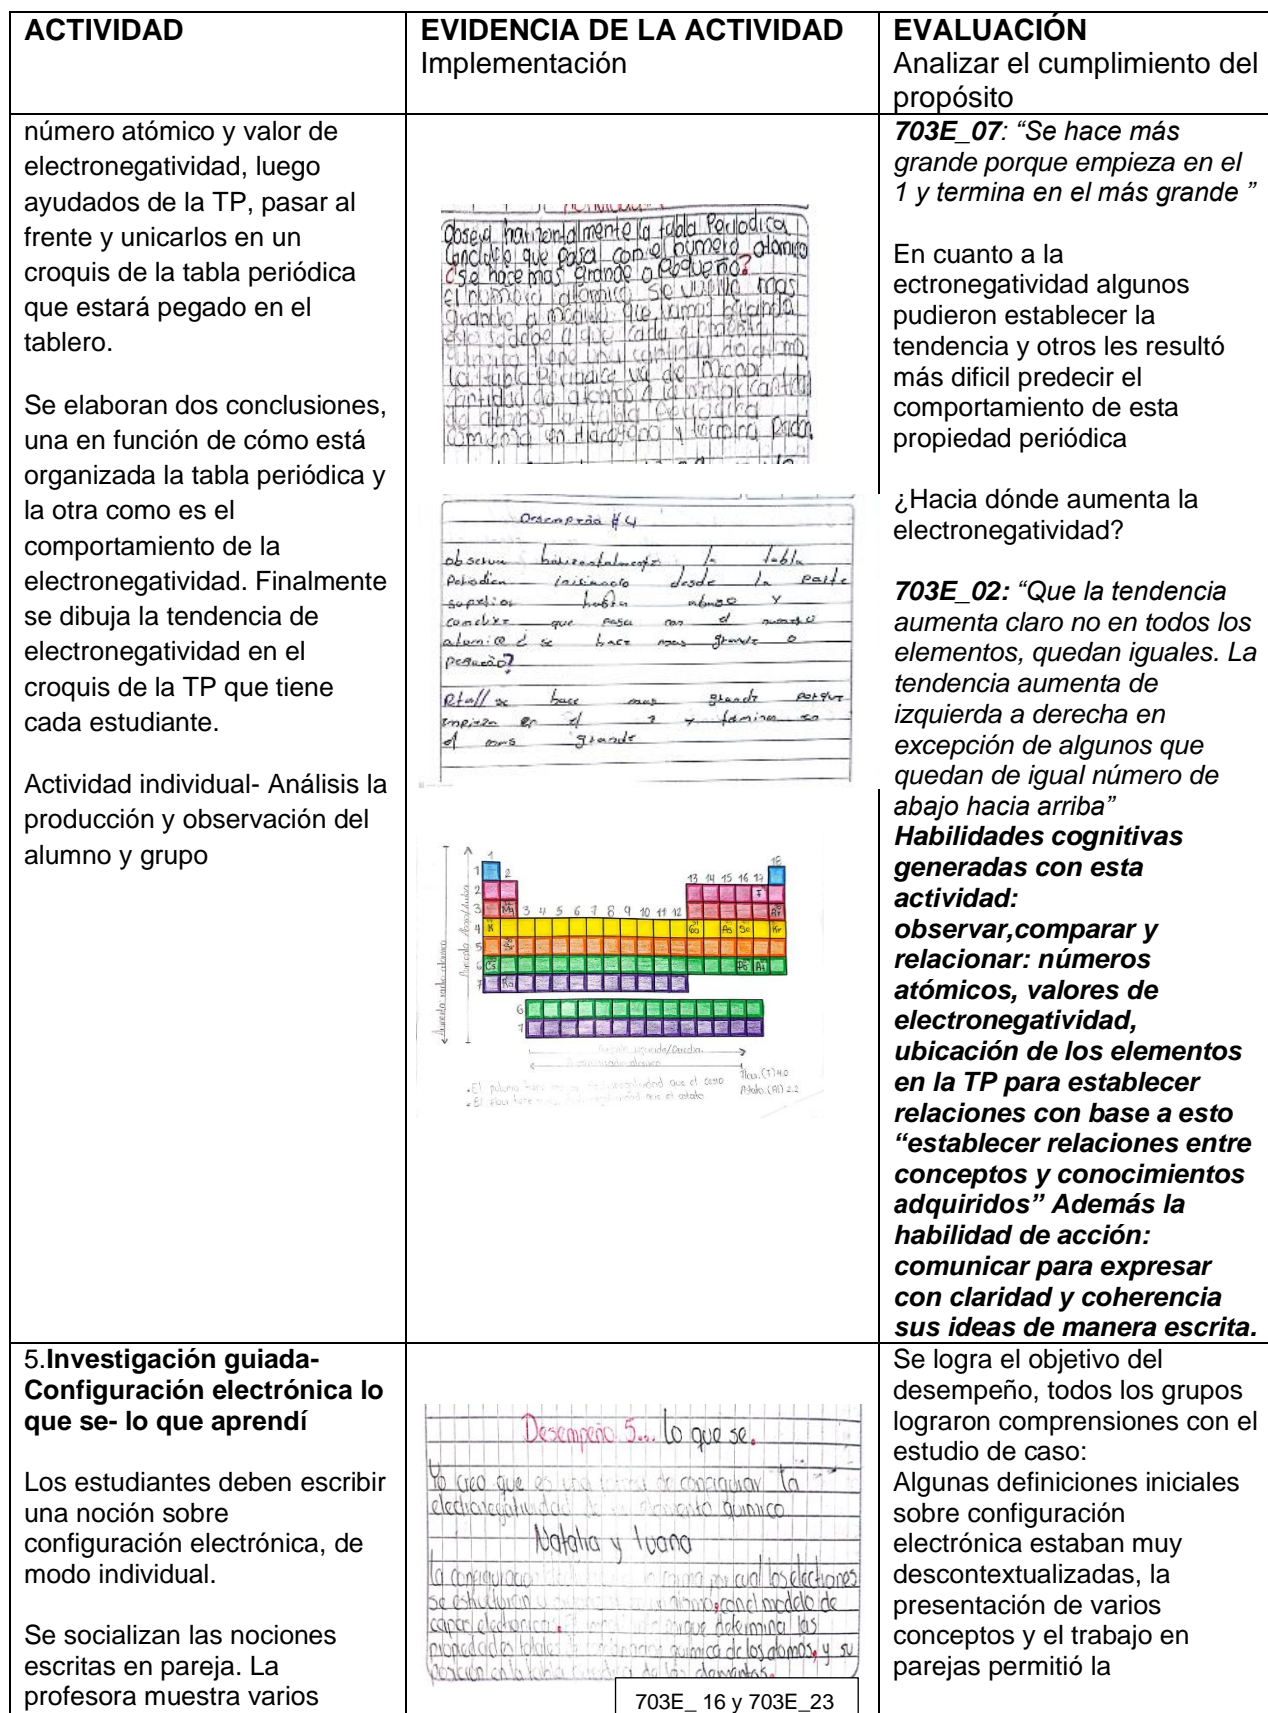 ACTIVIDAD
EVIDENCIA DE LA ACTIVIDAD
Implementación
EVALUACIÓN
Analizar el cumplimiento del
propósito
número atómico y valor de
electronegatividad, luego
ayudados de la TP, pasar al
frente y unicarlos en un
croquis de la tabla periódica
que estará pegado en el
tablero.
Se elaboran dos conclusiones,
una en función de cómo está
organizada la tabla periódica y
la otra como es el
comportamiento de la
electronegatividad. Finalmente
se dibuja la tendencia de
electronegatividad en el
croquis de la TP que tiene
cada estudiante.
Actividad individual- Análisis la
producción y observación del
alumno y grupo
Observa horizontalmente la tabla Periodica
que pasa con el numero atomico
¿se hace mas grande o pequeño?
El numero atomico se vuelve mas
grande a medida que vamos
cada elemento
quimico tiene una cantidad de
la tabla Periodica va de menor
cantidad de atomos a la mayor cantidad
de atomos la tabla periodica
comienza en y termina
Desempeño #4
observa horizontalmente la tabla
Periodica desde la parte
superior hasta abajo y
que pasa con el numero
atomico ¿ se hace mas grande o
pequeño?
se hace mas grande porque
empieza en el 1 y termina en
el mas grande
1
18
1 2 13 14 15 16 17
2 F
3 Mg 3 4 5 6 7 8 9 10 11 12 Ar
4 K Ga As Se Kr
5
6 Cs Po At
7 Ra
6
7
Aumenta radio atomico
Flour.(F)4.0
Astato.(At) 2.2
.El que el cesio
.El que el astato
703E_07: “Se hace más
grande porque empieza en el
1 y termina en el más grande ”
En cuanto a la
ectronegatividad algunos
pudieron establecer la
tendencia y otros les resultó
más dificil predecir el
comportamiento de esta
propiedad periódica
¿Hacia dónde aumenta la
electronegatividad?
703E_02: “Que la tendencia
aumenta claro no en todos los
elementos, quedan iguales. La
tendencia aumenta de
izquierda a derecha en
excepción de algunos que
quedan de igual número de
abajo hacia arriba”
Habilidades cognitivas
generadas con esta
actividad:
observar,comparar y
relacionar: números
atómicos, valores de
electronegatividad,
ubicación de los elementos
en la TP para establecer
relaciones con base a esto
“establecer relaciones entre
conceptos y conocimientos
adquiridos” Además la
habilidad de acción:
comunicar para expresar
con claridad y coherencia
sus ideas de manera escrita.
5.Investigación guiada-
Configuración electrónica lo
que se- lo que aprendí
Los estudiantes deben escribir
una noción sobre
configuración electrónica, de
modo individual.
Se socializan las nociones
escritas en pareja. La
profesora muestra varios
Desempeño 5... lo que se.
Yo creo que es una forma de configurar la
electronegatividad de un elemento quimico
Natalia y Ivana
la configuracion la forma por cual los electrones
se estructuran con el modelo de
capas electronica. porque determina las
propiedades quimica de los atomos, y su
posición en la tabla de los elementos.
703E_ 16 y 703E_23
Se logra el objetivo del
desempeño, todos los grupos
lograron comprensiones con el
estudio de caso:
Algunas definiciones iniciales
sobre configuración
electrónica estaban muy
descontextualizadas, la
presentación de varios
conceptos y el trabajo en
parejas permitió la